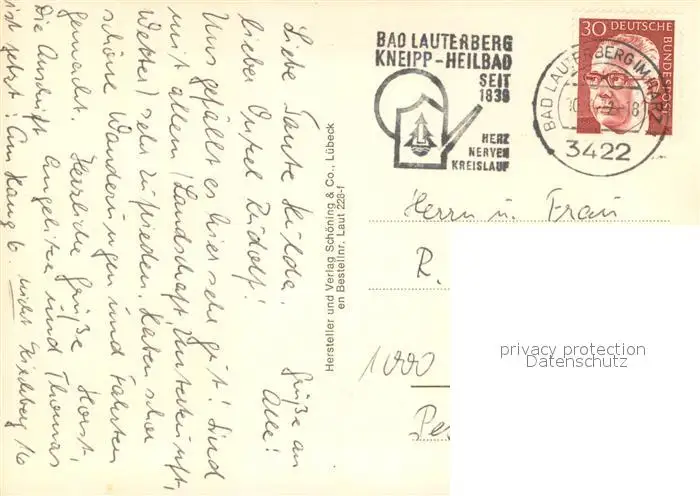 Liebe Tante Hilda,
lieber Onkel Rudolf!
Uns gefällt es hier sehr gut! Sind
mit allem (Landschaft, Unterkunft,
Wetter) sehr zufrieden. Haben schon
schöne Wanderungen und Fahrten
gemacht. Herzliche Grüße Horst,
Angelika und Thomas
Die Anschrift
ist jetzt: Am Hang 6. nicht 16
Grüße an
Alle!
Hersteller und Verlag Schöning & Co., Lübeck
en Bestellnr. Laut 228-f
BAD LAUTERBERG
KNEIPP-HEILBAD
SEIT
1839
HERZ
NERVEN
KREISLAUF
30 DEUTSCHE BUNDESPOST
BAD LAUTERBERG IM HARZ
3422
Herrn u. Frau
R.
1000
privacy protection
Datenschutz